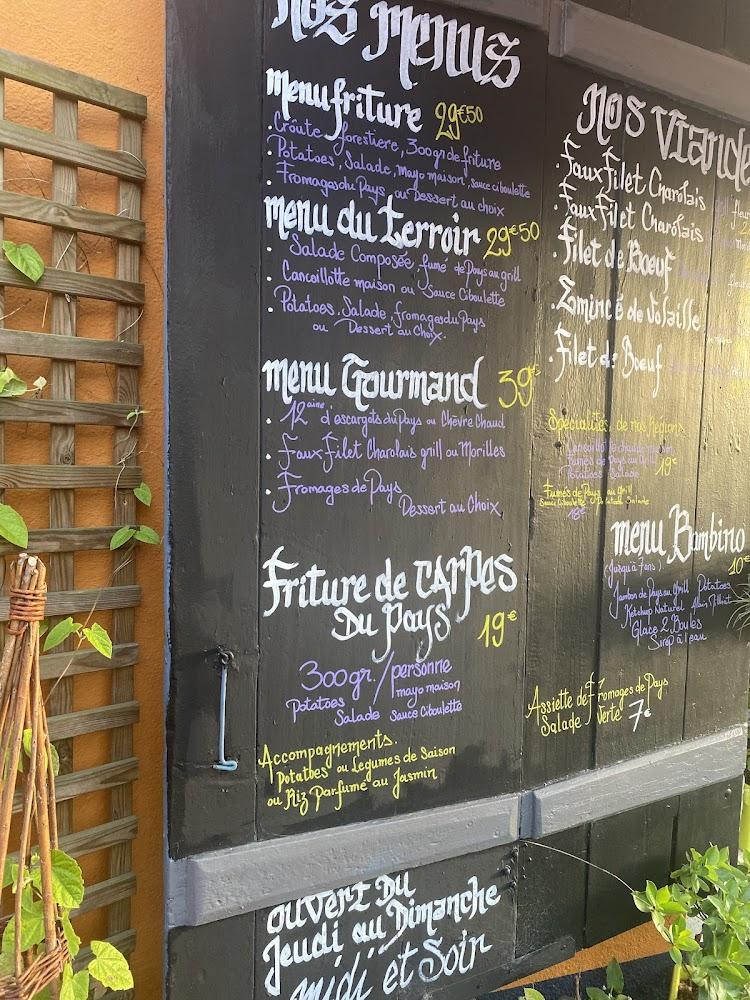 Nos Menus
menu friture 29€50
• Croûte forestière, 300gr de friture
• Potatoes, Salade, mayo maison, sauce ciboulette
• Fromages du Pays ou Dessert au choix
menu du terroir 29€50
• Salade Composée, fumé de Pays au grill
Cancoillotte maison ou Sauce Ciboulette
• Potatoes. Salade, fromages du Pays
ou Dessert au Choix.
menu Gourmand 39€
• 12aine d'escargots du Pays ou Chèvre Chaud
• Faux Filet Charolais grill ou Morilles
• Fromages de Pays
Dessert au Choix
friture de CARPes
Du Pays 19€
300gr. / personne
Potatoes mayo maison
Salade Sauce Ciboulette
Accompagnements.
Potatoes ou Légumes de Saison
ou Riz Parfumé au Jasmin
Ouvert Du
Jeudi au Dimanche
midi et Soir
Nos Viande
• Faux Filet Charolais
• Faux Filet Charolais
• Filet de Boeuf
• Emincé de Volaille
• Filet de Boeuf
Spécialités de nos Régions
Fumés de Pays au Grill 19€
Potatoes Salade
Fumés de Pays au Grill
Sauce Ciboulette Salade
18€
menu Bambino
(Jusqu'à 7 ans) 10€
Jambon de Pays au Grill Potatoes
Ketchup Naturel
Glace 2 Boules
Sirop à l'eau
Assiette de Fromages de Pays
Salade Verte 7€